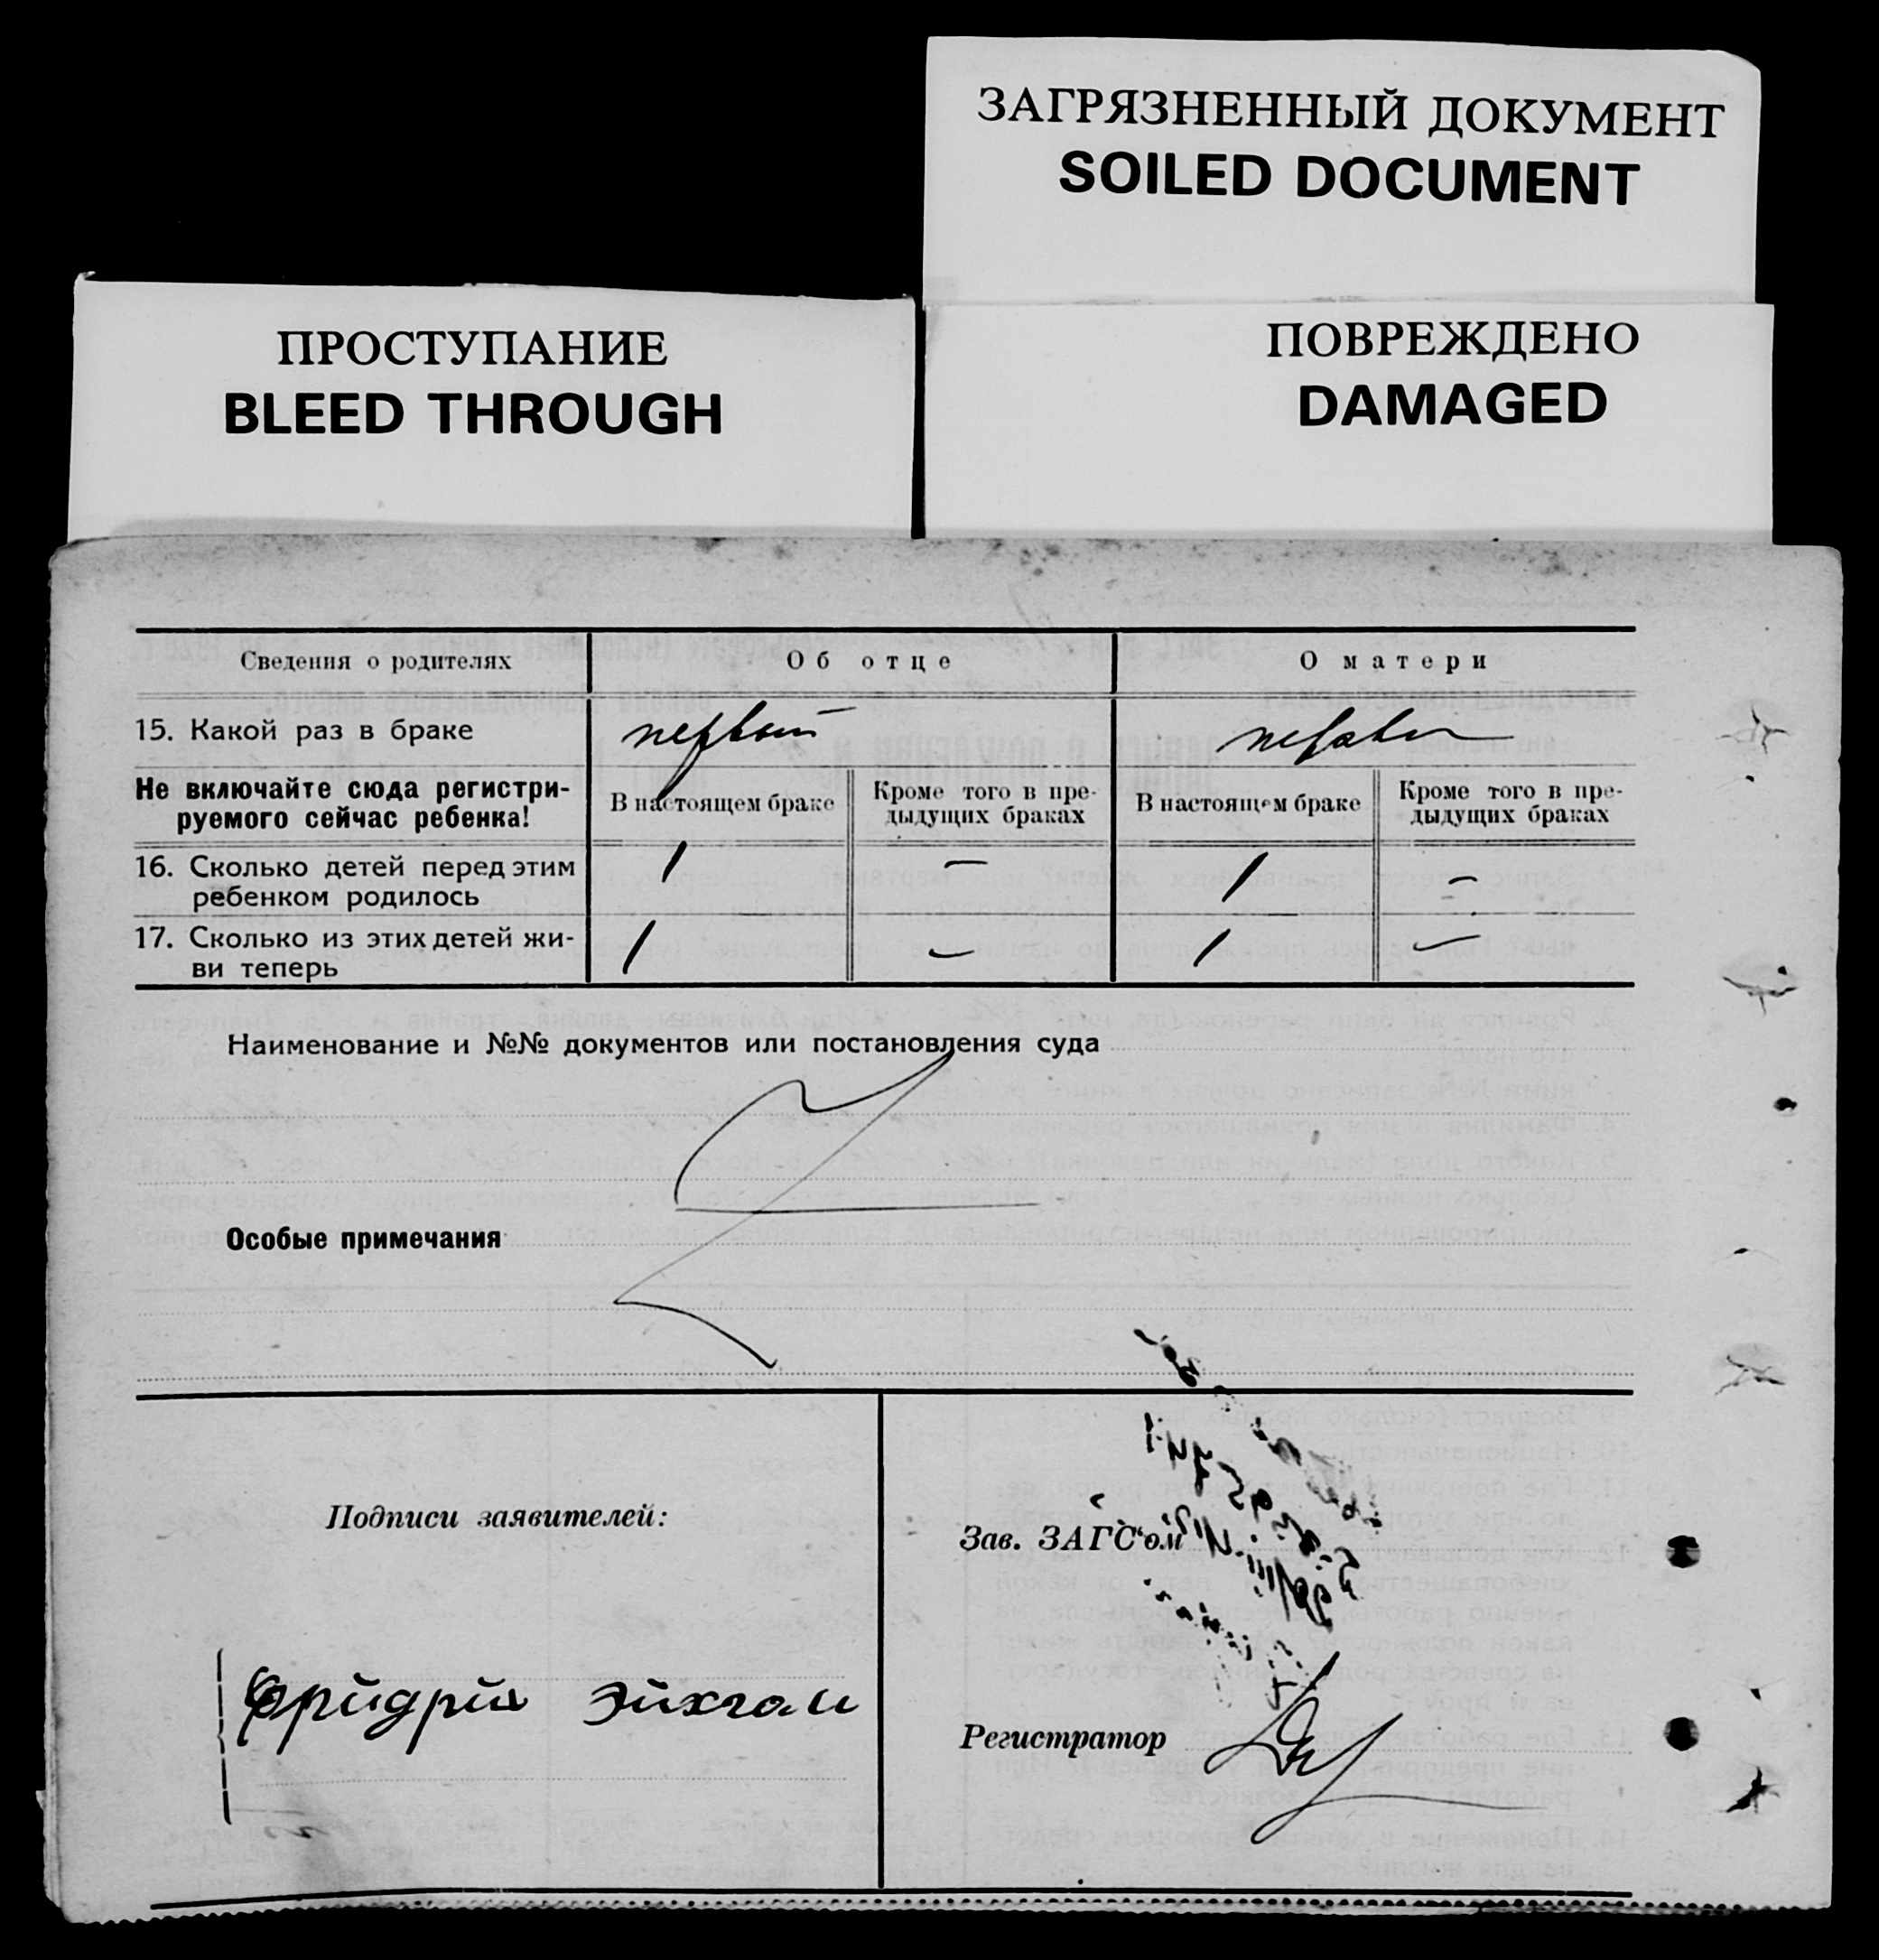 ЗАГРЯЗНЕННЫЙ ДОКУМЕНТ
SOILED DOCUMENT
ПРОСТУПАНИЕ
BLEED THROUGH
ПОВРЕЖДЕНО
DAMAGED
Сведения о родителях Об отце О матери
15. Какой раз в браке первый
Не включайте сюда регистри-
руемого сейчас ребенка!
В настоящем браке
Кроме того в пре-
дыдущих браках
В настоящем браке
Кроме того в пре-
дыдущих браках
16. Сколько детей перед этим
ребенком родилось
1 — 1 —
17. Сколько из этих детей жи-
ви теперь
1 — 1 —
Наименование и №№ документов или постановления суда
Особые примечания
Подписи заявителей:
Зав. ЗАГС'ом
Регистратор